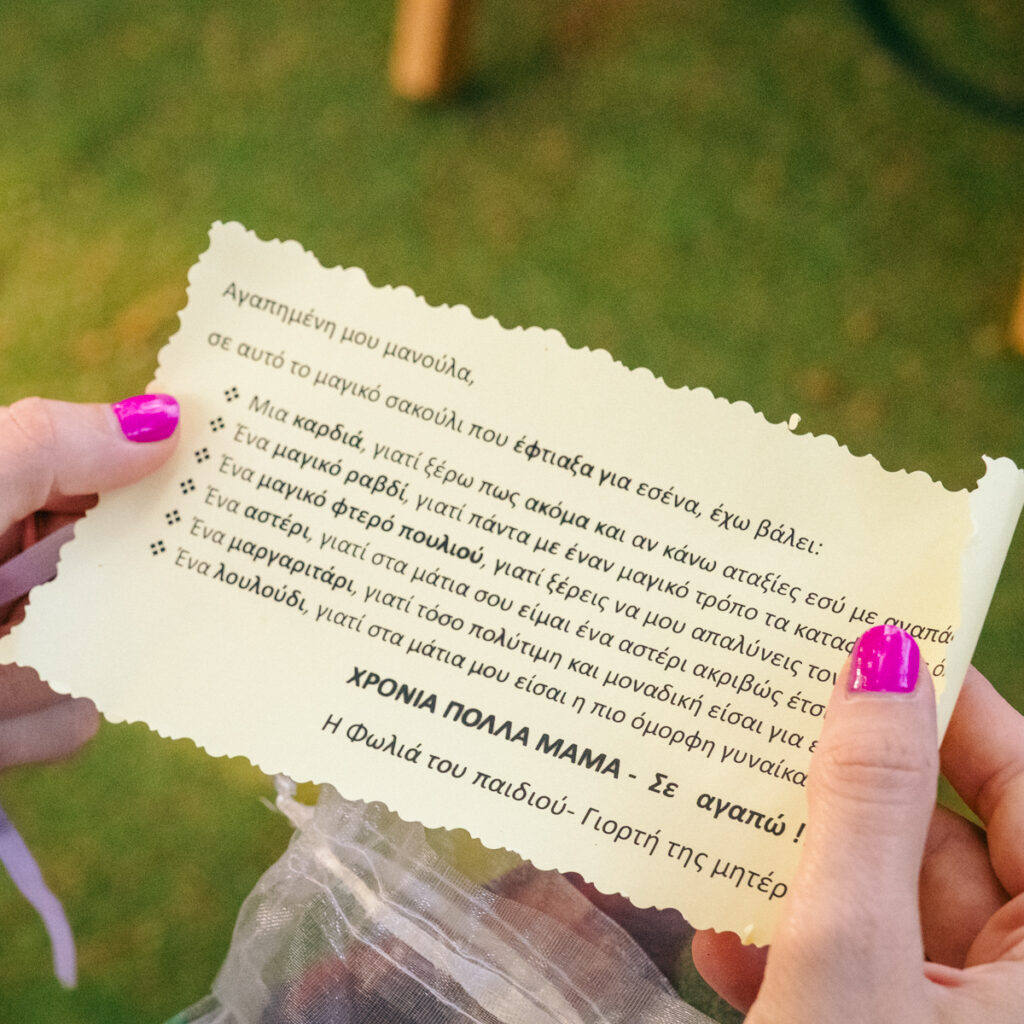 Αγαπημένη μου μανούλα,
σε αυτό το μαγικό σακούλι που έφτιαξα για εσένα, έχω βάλει:
❖ Μια καρδιά, γιατί ξέρω πως ακόμα και αν κάνω αταξίες εσύ με
❖ Ένα μαγικό ραβδί, γιατί πάντα με έναν μαγικό τρόπο τα
❖ Ένα μαγικό φτερό πουλιού, γιατί ξέρεις να μου απαλύνεις
❖ Ένα αστέρι, γιατί στα μάτια σου είμαι ένα αστέρι ακριβώς
❖ Ένα μαργαριτάρι, γιατί τόσο πολύτιμη και μοναδική είσαι για
❖ Ένα λουλούδι, γιατί στα μάτια μου είσαι η πιο όμορφη γυναίκα
ΧΡΟΝΙΑ ΠΟΛΛΑ ΜΑΜΑ - Σε αγαπώ !
Η Φωλιά του παιδιού- Γιορτή της